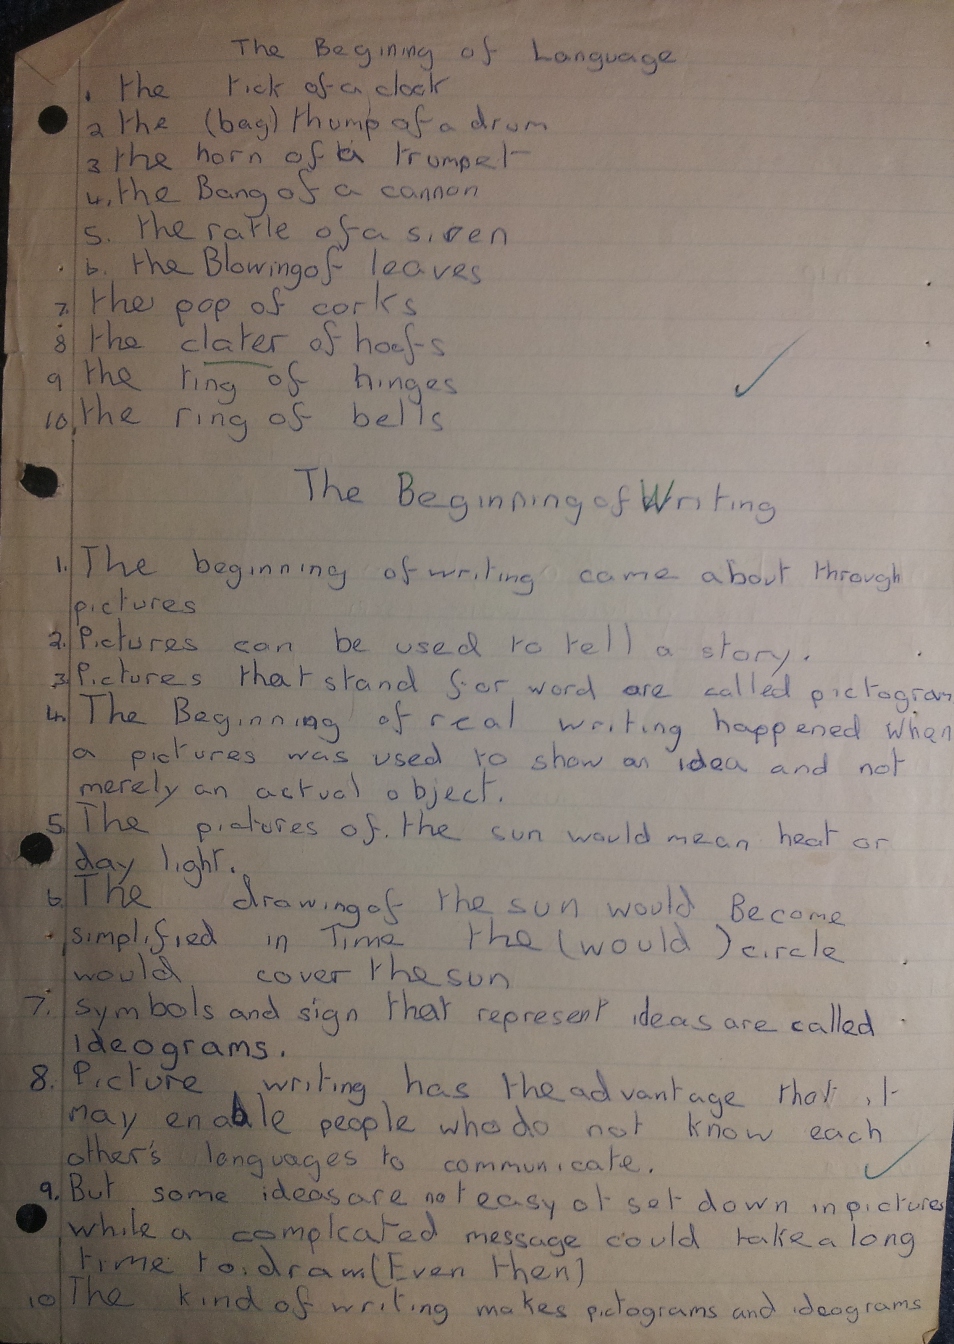 The Begining of Language
1. the tick of a clock
2 the (bag) thump of a drum
3 the horn of a trumpet
4. the Bang of a cannon
5. the ratle of a siren
6. the Blowing of leaves
7. the pop of corks
8 the clater of hoofs
9 the ring of hinges
10. the ring of bells
The Beginning of Writing
1. The beginning of writing came about through
pictures
2. Pictures can be used to tell a story.
3. Pictures that stand for word are called pictogram
4. The Beginning of real writing happened when
a pictures was used to show an idea and not
merely an actual object.
5. The pictures of the sun would mean heat or
day light.
6. The drawing of the sun would Become
simplified in Time the (would) circle
would cover the sun
7. Symbols and sign that represent ideas are called
Ideograms.
8. Picture writing has the advantage that it
may enable people who do not know each
other's languages to communicate.
9. But some ideas are not easy ot set down in pictures
while a complcated message could take a long
time to draw (Even then)
10 The kind of writing makes pictograms and ideograms